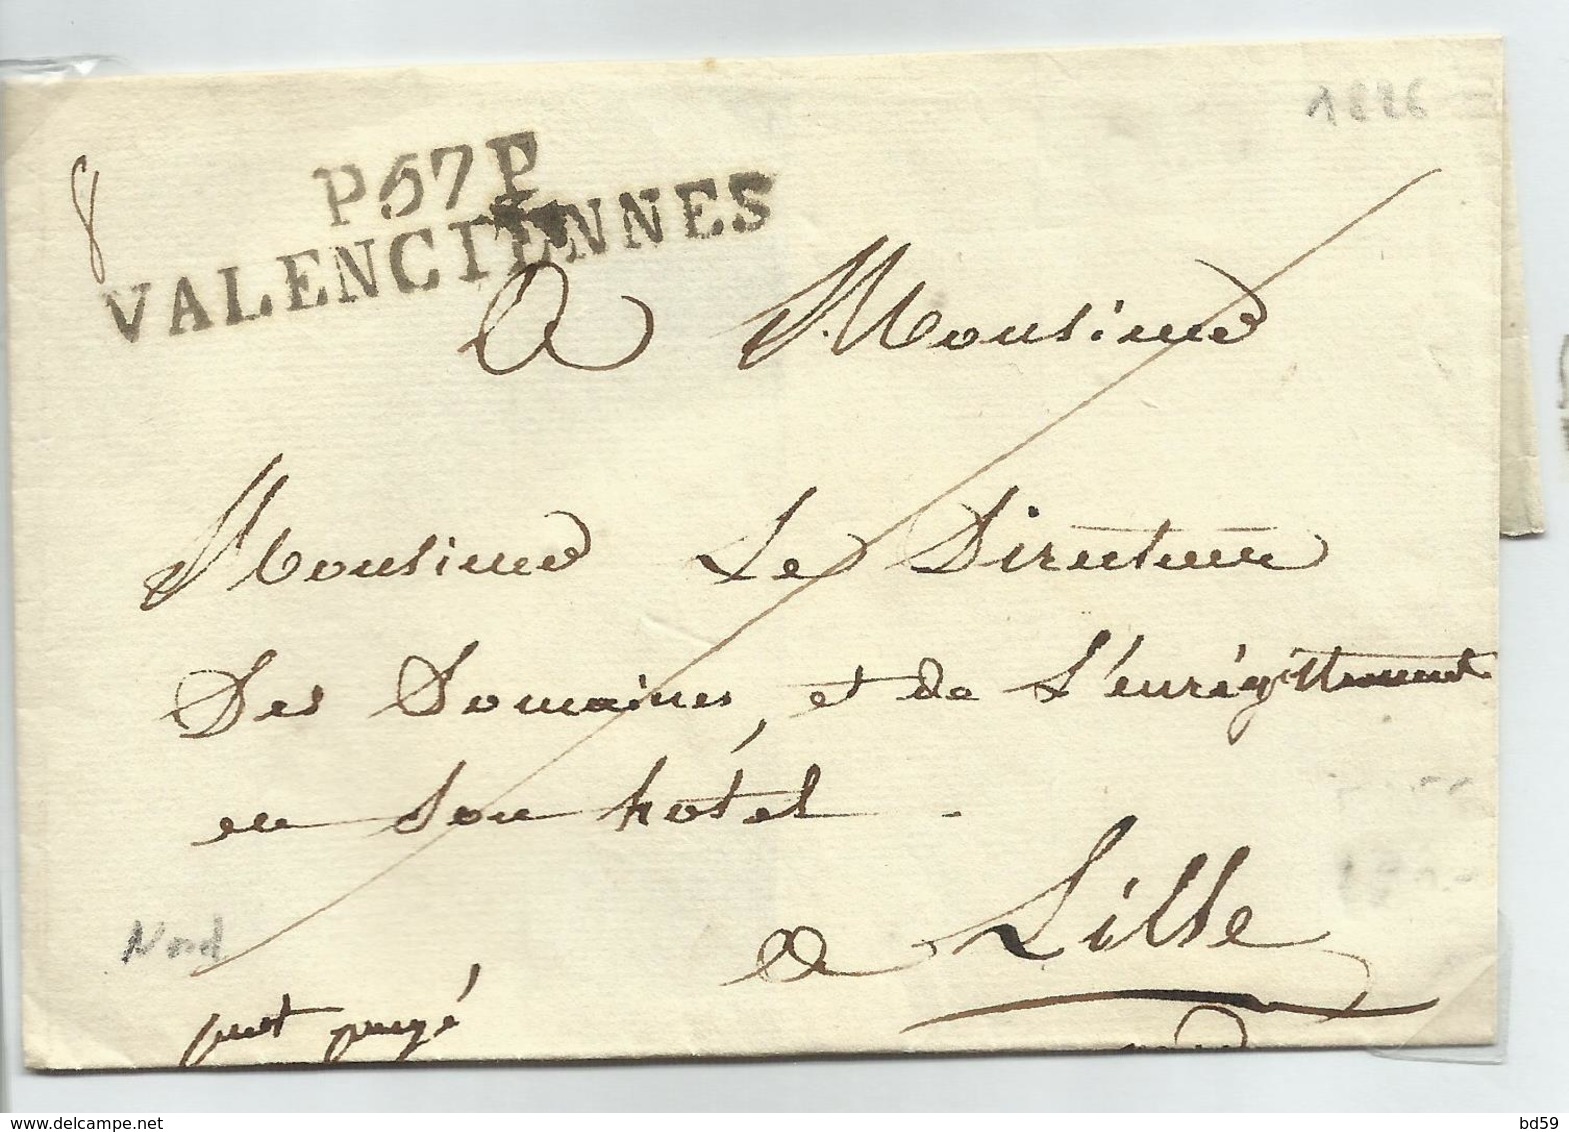 1826
8
P.57P
VALENCIENNES
A Monsieur
Monsieur Le Directeur
Des Domaines, et de L'enrégittrement
en son hôtel.
Nord
a Lille
port payé
www.delcampe.net
bd59